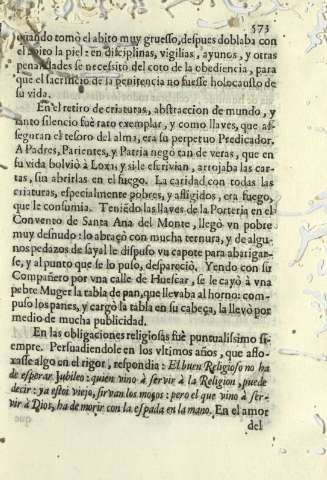 573
quando tomò el abito muy gruesso, despues doblaba con
el abito la piel: en disciplinas, vigilias, ayunos, y otras
penalidades se necessitò del coto de la obediencia, para
que el sacrificio de la penitencia no fuesse holocausto de
su vida.
En el retiro de criaturas, abstraccion de mundo, y
tanto silencio fuè raro exemplar, y como llaves, que as-
seguran el tesoro del alma, era su perpetuo Predicador.
A Padres, Parientes, y Patria negò tan de veras, que en
su vida bolviò à Loxa; y si le escrivian, arrojaba las car-
tas, sin abrirlas en el fuego. La caridad con todas las
criaturas, especialmente pobres, y afligidos, era fuego,
que le consumia. Teniẽdo las llaves de la Porteria en el
Convento de Santa Ana del Monte, llegò vn pobre
muy desnudo: lo abraçò con mucha ternura, y de algu-
nos pedazos de sayal le dispuso vn capote para abarigar-
se, y al punto que se lo puso, despareciò. Yendo con su
Compañero por vna calle de Huescar, se le cayò à vna
pobre Muger la tabla de pan, que llevaba al horno: com-
puso los panes, y cargò la tabla en su cabeça, la llevò por
medio de mucha publicidad.
En las obligaciones religiosas fuè puntualissimo si-
empre. Persuadiendole en los vltimos años, que aflo-
xasse algo en el rigor, respondia: El buen Religioso no ha
de esperar Jubileo: quien vino à servir à la Religion, puede
decir: ya estoi viejo, sirvan los moços: pero el que vino à ser-
vir à Dios, ha de morir con la espada en la mano. En el amor
del